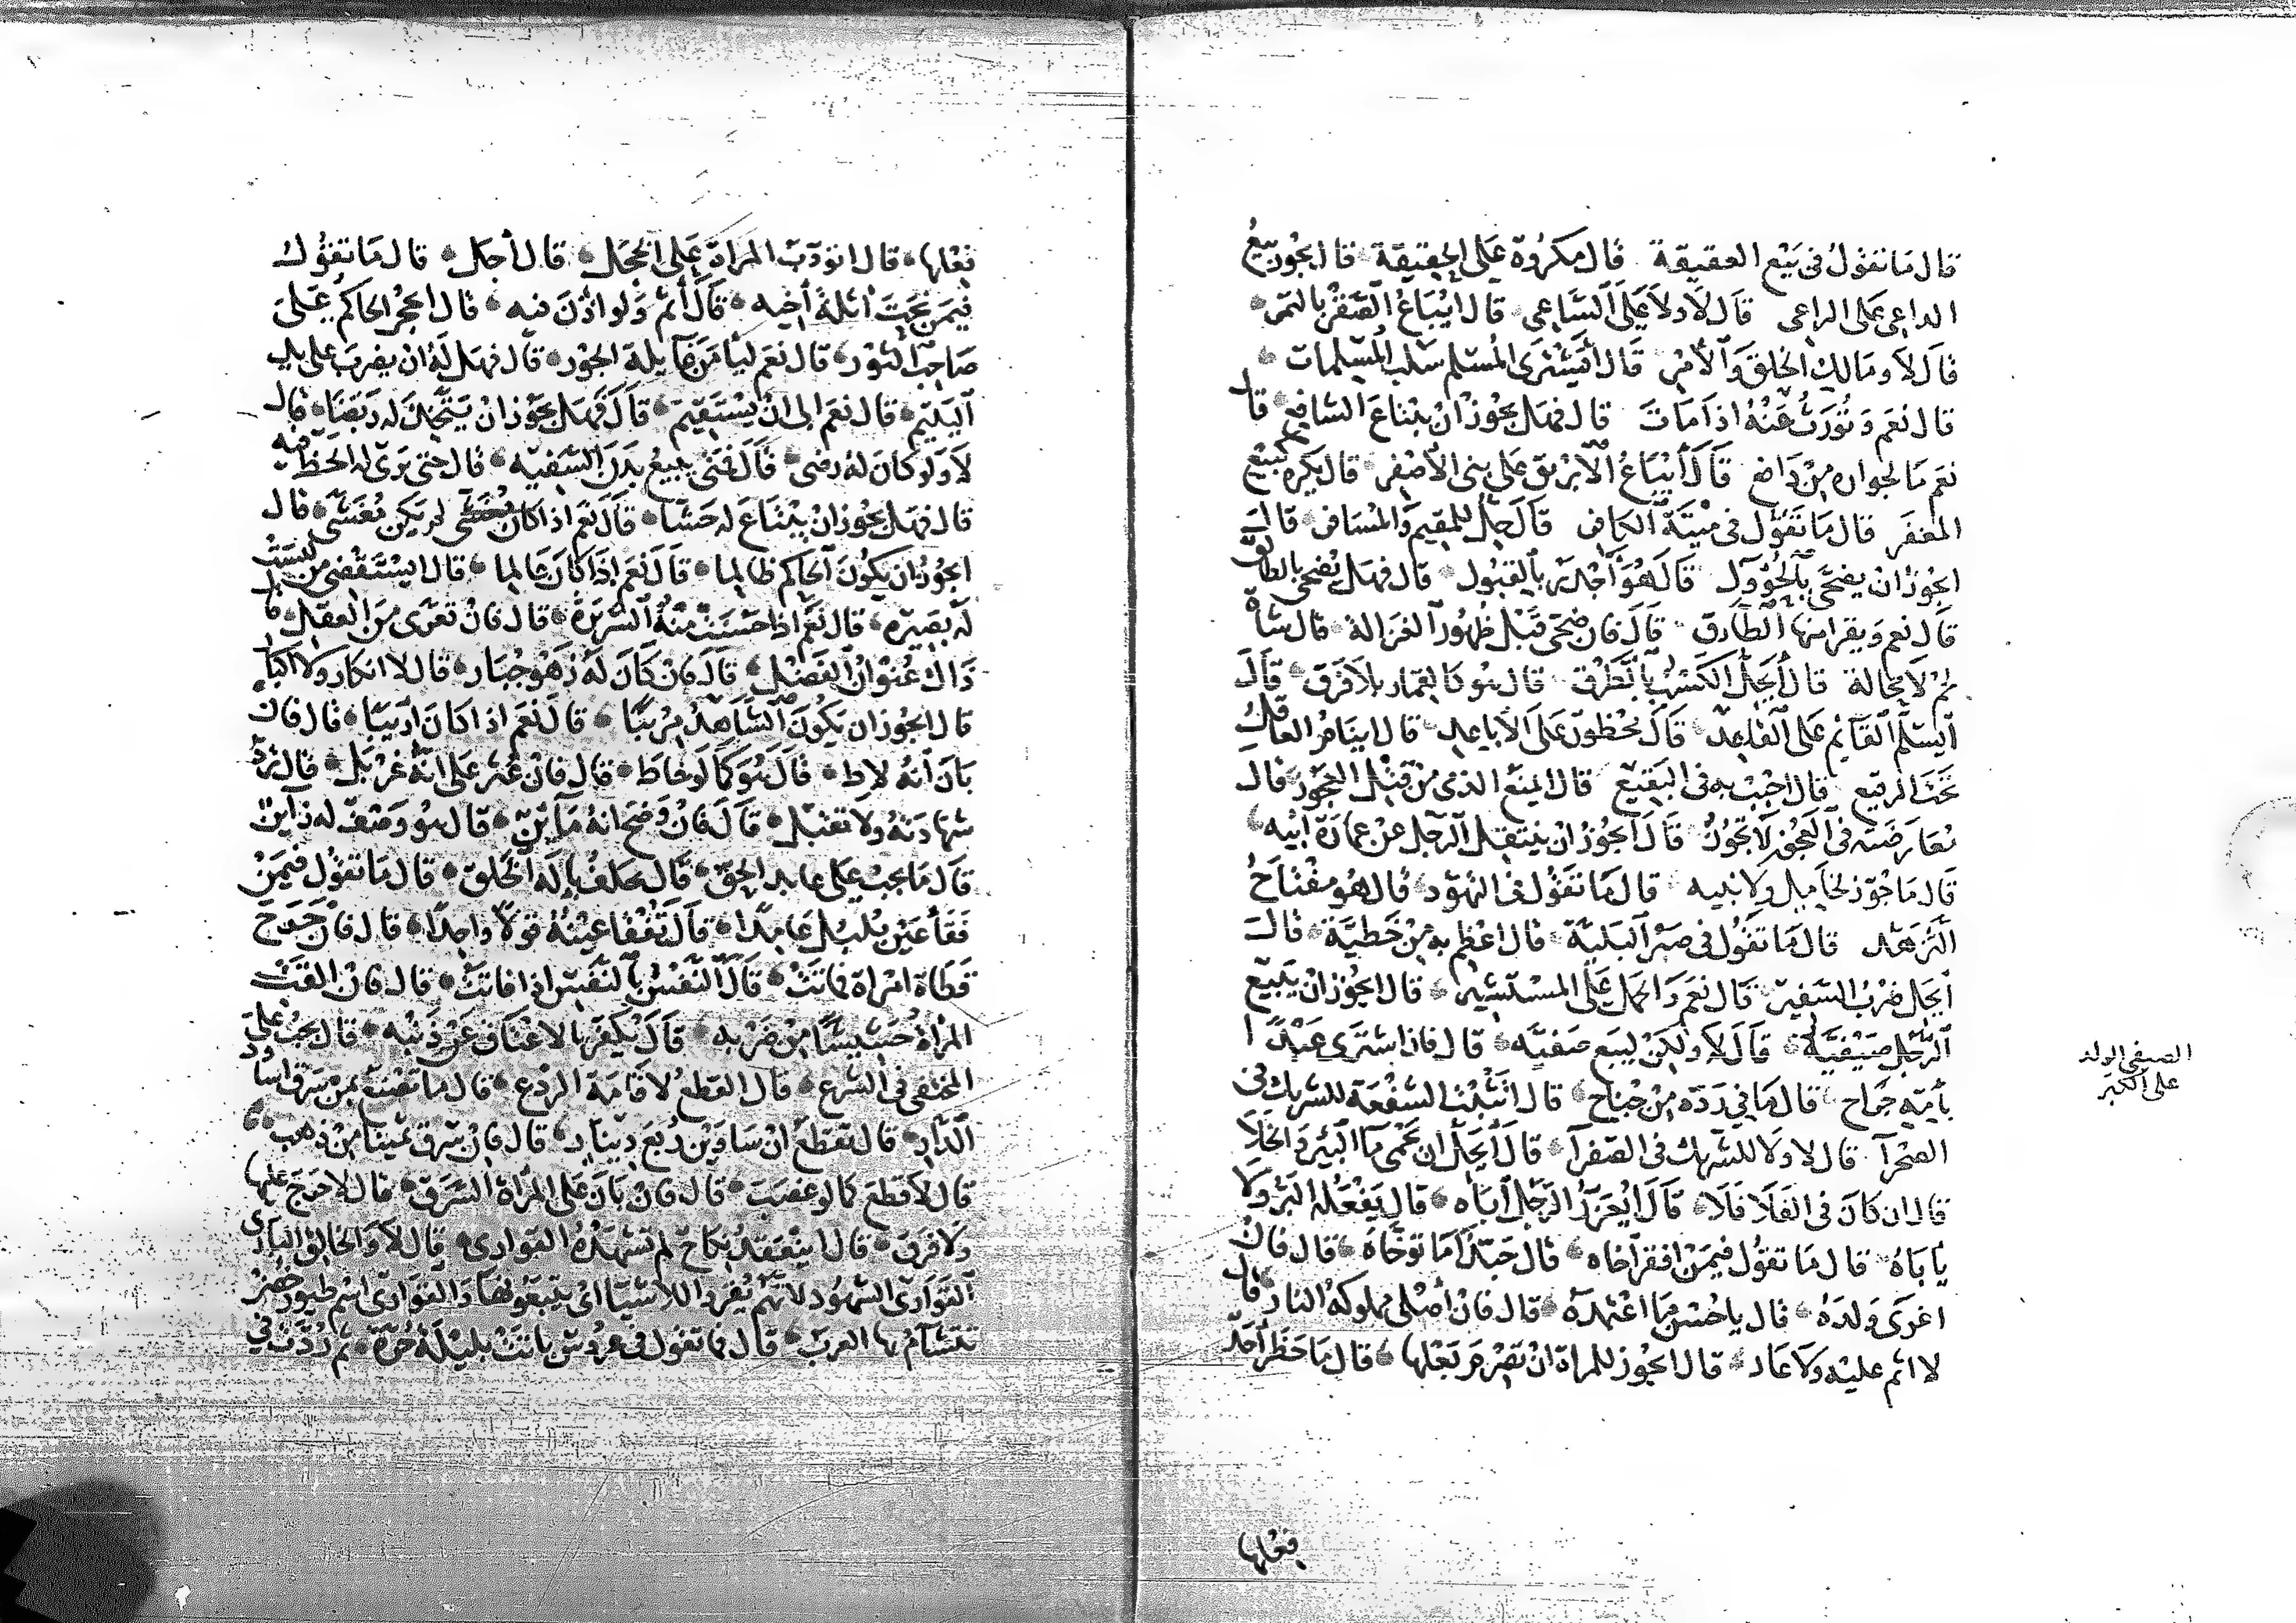 قال ما تقول في بيع العقيقة قال مكروه على الحقيقة قال ايجوز بيع
الداعي على الراعي قال لا ولا على الساعي قال ايباع الصقر بالتمر
قال لا ومالك الخلق والامر قال أيشترى المسلم سلب المسلمات
قال نعم وتورث عنه اذا مات قال فهل يجوز ان يبتاع الشافع قال
نعم ما لجوازه من دافع قال أيباع الابريق على بني الاصفر قال يكره كبيع
المغفر قال ما تقول في ميتة الكافر قال حل للمقيم والمسافر قال
ايجوز ان يضحى بالحول قال هو أجدر بالقبول قال فهل يضحى بالطالق
قال نعم ويقرا منها الطارق قال فان ضحى قبل ظهور الغزالة قال شاة
لحم لا محالة قال أيحل الكسب بالطرق قال هو كالقمار بلا فرق قال
أيسلم القائم على القاعد قال محظور على الاباعد قال اينام العاقل
تحت الرقيع قال احبب به في البقيع قال ايمنع الذمي من قتل العجوز قال
معارضته في العجوز لا تجوز قال أيجوز ان ينتقل الرجل عن عمارة ابيه
قال ما جوز لخامل ولا نبيه قال ما تقول في التهود قال هو مفتاح
التزهد قال ما تقول في صبر البلية قال اعظم به من خطية قال
ايحل ضرب السفير قال نعم والحمل على المستشير قال ايجوز ان يبيع
الرجل صيفيه قال لا ولكن ليبع صفيه قال فان اشترى عبدا
بأمه جراح قال ما في رده من جناح قال اتثبت الشفعة للشريك في
الصحرآ قال لا ولا للشريك في الصفرآ قال أيحل ان يحمى مآ البئر والخلا
قال ان كان في الفلا فلا قال ايعزر الرجل أباه قال يفعله البر ولا
يأباه قال ما تقول فيمن افقر أخاه قال حبذا ما توخاه قال فان
اعرى ولده قال يا حسن ما اعتمده قال فان أصلى مملوكه النار قال
لا اثم عليه ولا عار قال ايجوز للمراة ان تصرم بعلها قال ما حظر أحد
فعلها
الصيفي الولد
على الكبر
فعلها قال اتودب المراة على الخجل قال أجل قال ما تقول
فيمن نحت أثلة أخيه قال أثم ولو اذن فيه قال ايحجر الحاكم على
صاحب الثور قال نعم ليأمن غايلة الجور قال فهل له ان يضرب على يد
اليتيم قال نعم الى ان يستقيم قال فهل يجوز ان يتخذ له ربضا قال
لا ولو كان له رضى قال فمتى يبيع بدن السفيه قال حتى يرى له الحظ فيه
قال فهل يجوز ان يبتاع له حشا قال نعم اذا لم يكن مغشى قال
ايجوز ان يكون الحاكم ظالما قال نعم اذا كان عالما قال ايستقضى من ليست
له بصيره قال نعم اذا حسنت منه السريرة قال فان تعرى من العقل قال
ذاك عنوان الفضل قال فان كان له زهو جبار قال لا انكار ولا اكبار
قال ايجوز ان يكون الشاهد مريبا قال نعم اذا كان أريبا قال فان
بان أنه لاط قال هو كما لو خاط قال فان عثر على انه غربل قال ترد
شهادته ولا تقبل قال فان وضح انه مآئن قال هو وصف له زآين
قال ما يجب على عابد الحق قال يحلف بإله الخلق قال ما تقول فيمن
فقأ عين بلبل عامدا قال تفقأ عينه قولا واحدا قال فان جرح
قطاة امراة فماتت قال النفس بالنفس اذا فاتت قال فان القت
المراة حشيشا من ضربه قال ليكفر بالاعتاق عن ذنبه قال يجب على
المختفي في الشرع قال القطع لاقامة الردع قال ما تصنع بمن سرق اساود
الدار قال تقطع ان ساوين ربع دينار قال فان سرق ثمينا من ذهب
قال لا قطع كما لو غصب قال فان بان على المراة السرق قال لا حرج عليها
ولا فرق قال اينعقد نكاح لم تشهده القواري قال لا والخالق الباري
القواري الشهود لانهم يقرو الاشيآ اي يتبعونها والقواري اسم طيور خضر
تتشآم بها العرب قال ما تقول في عروس باتت بليلة حرة ثم ردت في